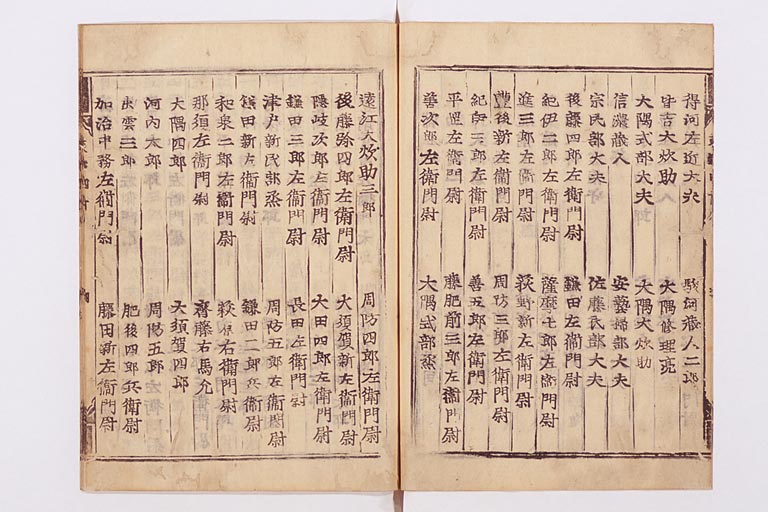 得河左近大夫　駿河蔵人二郎
大炊助　大隅修理亮
大隅式部大夫　大隅大炊助
信濃蔵人　安藝掃部大夫
宗民部大夫　佐藤民部大夫
後藤四郎左衛門尉　鎌田左衛門尉
紀伊二郎左衛門尉　薩摩七郎左衛門尉
進三郎左衛門尉　荻野新左衛門尉
豊後新左衛門尉　周防三郎左衛門尉
紀伊三郎左衛門尉　善五郎左衛門尉
平賀左衛門尉　藤肥前三郎左衛門尉
善次郎左衛門尉　大隅式部丞
遠江大炊助三郎　周防四郎左衛門尉
後藤弥四郎左衛門尉　大須賀新左衛門尉
隠岐次郎左衛門尉　大田四郎左衛門尉
鎌田三郎左衛門尉　長田左衛門尉
津戸新民部丞　周防五郎左衛門尉
鎌田新左衛門尉　鎌田二郎兵衛尉
和泉二郎左衛門尉　荻原右衛門尉
那須左衛門尉　齋藤右馬允
大隅四郎　大須賀四郎
河内太郎　周防五郎
出雲三郎左衛門尉　肥後四郎兵衛尉
加治中務左衛門尉　藤田新左衛門尉